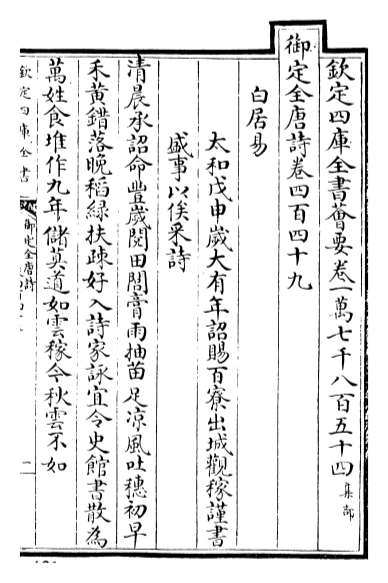 欽定四庫全書薈要卷一萬七千八百五十四 集部
御定全唐詩卷四百四十九
白居易
太和戊申歲大有年詔賜百寮出城觀稼謹書
盛事以俟采詩
清晨承詔命豐歲閱田閭膏雨抽苗足凉風吐穗初早
禾黃錯落晚稻綠扶疎好入詩家詠宜令史館書散為
萬姓食堆作九年儲莫道如雲稼今秋雲不如
欽定四庫全書
御定全唐詩
一